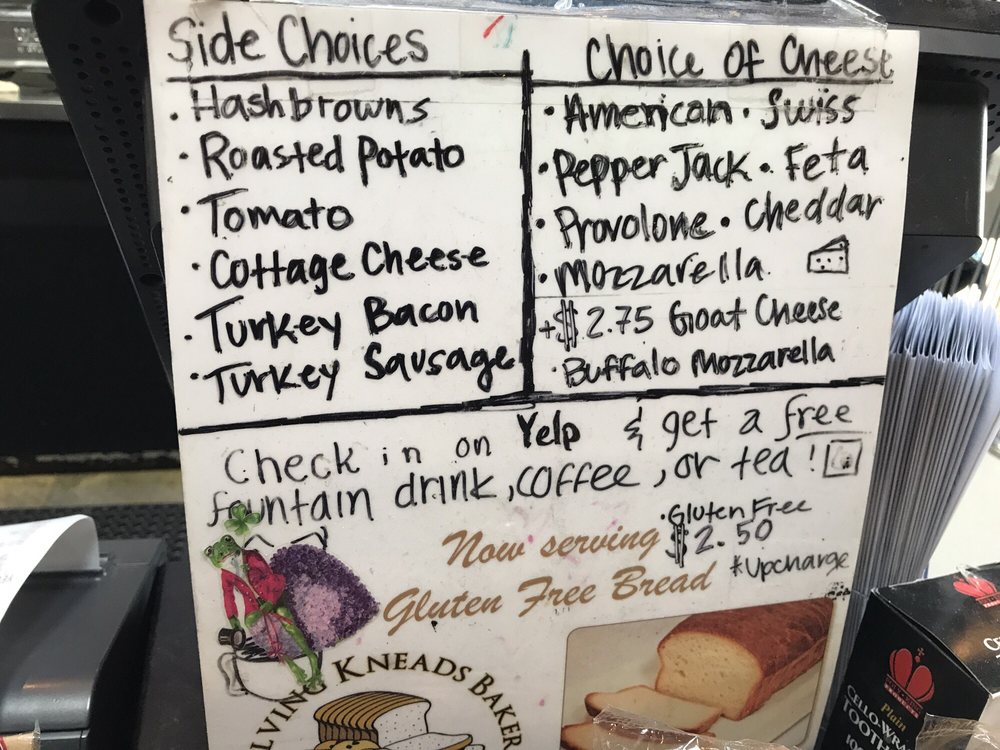 Side Choices
• Hashbrowns
• Roasted Potato
• Tomato
• Cottage Cheese
• Turkey Bacon
• Turkey Sausage
Choice of Cheese
• American • Swiss
• Pepper Jack • Feta
• Provolone • Cheddar
• Mozzarella
+$2.75 Goat Cheese
• Buffalo Mozzarella
Check in on Yelp & get a free
fountain drink, coffee, or tea!
• Gluten Free
$2.50
*Upcharge
Now serving
Gluten Free Bread
KNEADS BAKER
Plain
CELLO-WR
TOOTH